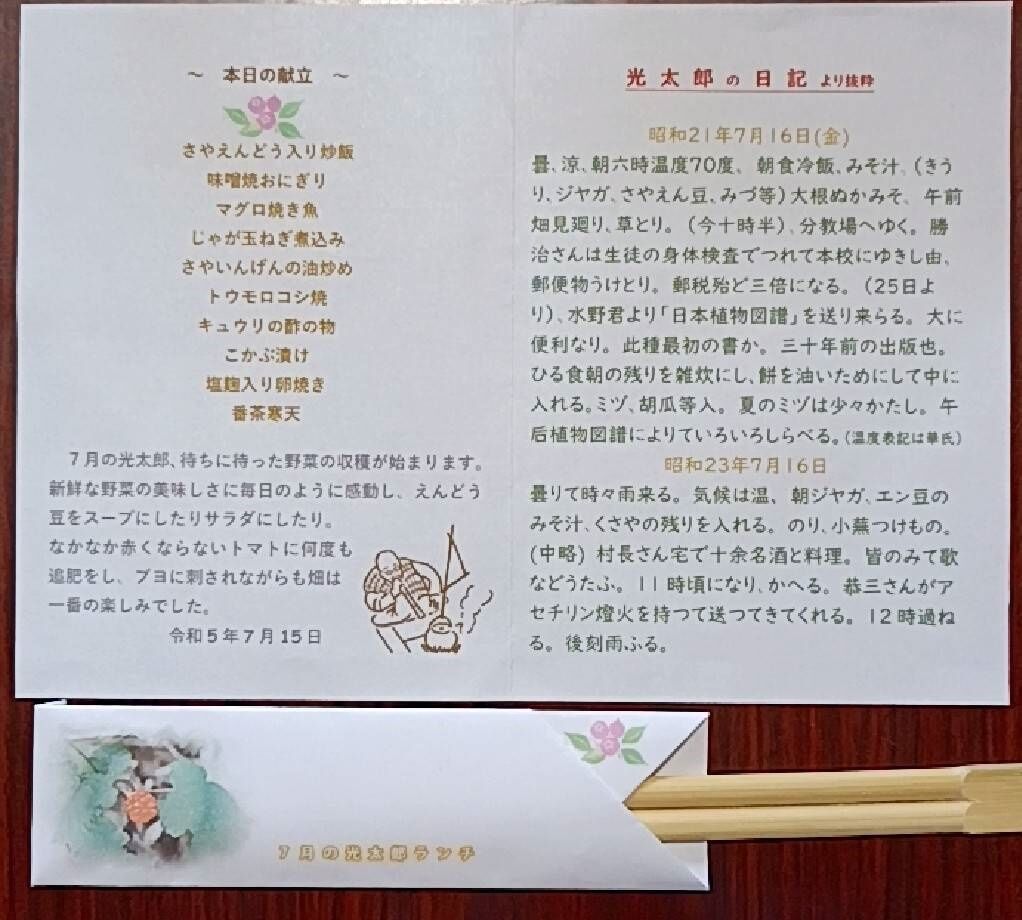 ～ 本日の献立 ～
さやえんどう入り炒飯
味噌焼おにぎり
マグロ焼き魚
じゃが玉ねぎ煮込み
さやいんげんの油炒め
トウモロコシ焼
キュウリの酢の物
こかぶ漬け
塩麹入り卵焼き
番茶寒天
７月の光太郎、待ちに待った野菜の収穫が始まります。
新鮮な野菜の美味しさに毎日のように感動し、えんどう
豆をスープにしたりサラダにしたり。
なかなか赤くならないトマトに何度も
追肥をし、ブヨに刺されながらも畑は
一番の楽しみでした。
令和５年７月１５日
光太郎の日記より抜粋
昭和21年7月16日(金)
曇、涼、朝六時温度70度、朝食冷飯、みそ汁、（きう
り、ジヤガ、さやえん豆、みづ等）大根ぬかみそ、午前
畑見廻り、草とり。（今十時半）、分教場へゆく。勝
治さんは生徒の身体検査でつれて本校にゆきし由、
郵便物うけとり。郵税殆ど三倍になる。（25日よ
り）、水野君より「日本植物図譜」を送り来らる。大に
便利なり。此種最初の書か。三十年前の出版也。
ひる食朝の残りを雑炊にし、餅を油いためにして中に
入れる。ミヅ、胡瓜等入。夏のミヅは少々かたし。午
后植物図譜によりていろいろしらべる。（温度表記は華氏）
昭和23年7月16日
曇りて時々雨来る。気候は温、朝ジヤガ、エン豆の
みそ汁、くさやの残りを入れる。のり、小蕪つけもの。
(中略) 村長さん宅で十余名酒と料理。皆のみて歌
などうたふ。11時頃になり、かへる。恭三さんがア
セチリン燈火を持つて送つてきてくれる。12時過ね
る。後刻雨ふる。
７月の光太郎ランチ